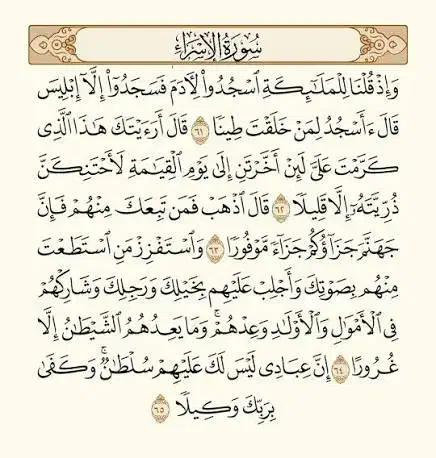 سُورَةُ الإِسْرَاءِ
وَإِذْ قُلْنَا لِلْمَلَٰٓئِكَةِ ٱسْجُدُوا۟ لِأٓدَمَ فَسَجَدُوٓا۟ إِلَّآ إِبْلِيسَ
قَالَ ءَأَسْجُدُ لِمَنْ خَلَقْتَ طِينًا ٦١ قَالَ أَرَءَيْتَكَ هَٰذَا ٱلَّذِى
كَرَّمْتَ عَلَىَّ لَئِنْ أَخَّرْتَنِ إِلَىٰ يَوْمِ ٱلْقِيَٰمَةِ لَأَحْتَنِكَنَّ
ذُرِّيَّتَهُۥٓ إِلَّا قَلِيلًا ٦٢ قَالَ ٱذْهَبْ فَمَن تَبِعَكَ مِنْهُمْ فَإِنَّ
جَهَنَّمَ جَزَآؤُكُمْ جَزَآءً مَّوْفُورًا ٦٣ وَٱسْتَفْزِزْ مَنِ ٱسْتَطَعْتَ
مِنْهُم بِصَوْتِكَ وَأَجْلِبْ عَلَيْهِم بِخَيْلِكَ وَرَجِلِكَ وَشَارِكْهُمْ
فِى ٱلْأَمْوَٰلِ وَٱلْأَوْلَٰدِ وَعِدْهُمْ ۚ وَمَا يَعِدُهُمُ ٱلشَّيْطَٰنُ إِلَّا
غُرُورًا ٦٤ إِنَّ عِبَادِى لَيْسَ لَكَ عَلَيْهِمْ سُلْطَٰنٌ ۚ وَكَفَىٰ
بِرَبِّكَ وَكِيلًا ٦٥